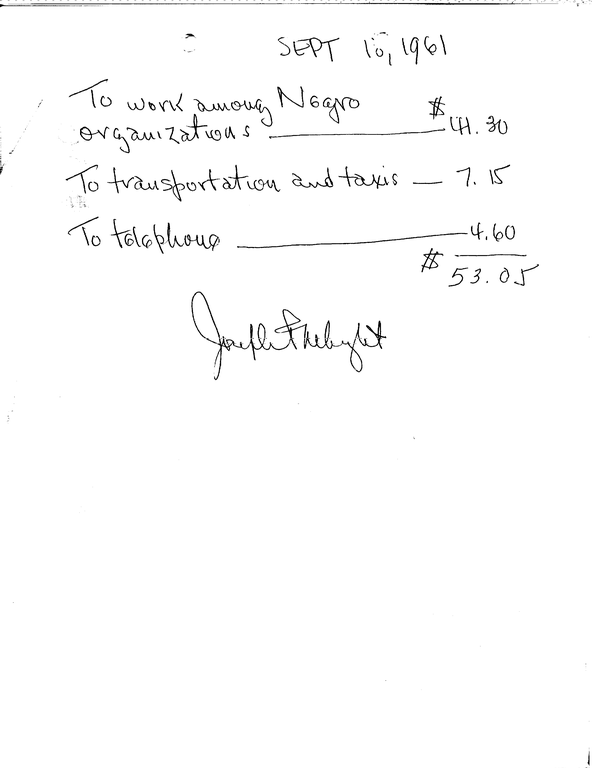 SEPT 10, 1961
To work among Negro $
organizations 41.30
To transportation and taxis — 7.15
To telephone 4.60
$ 53.05
Joseph